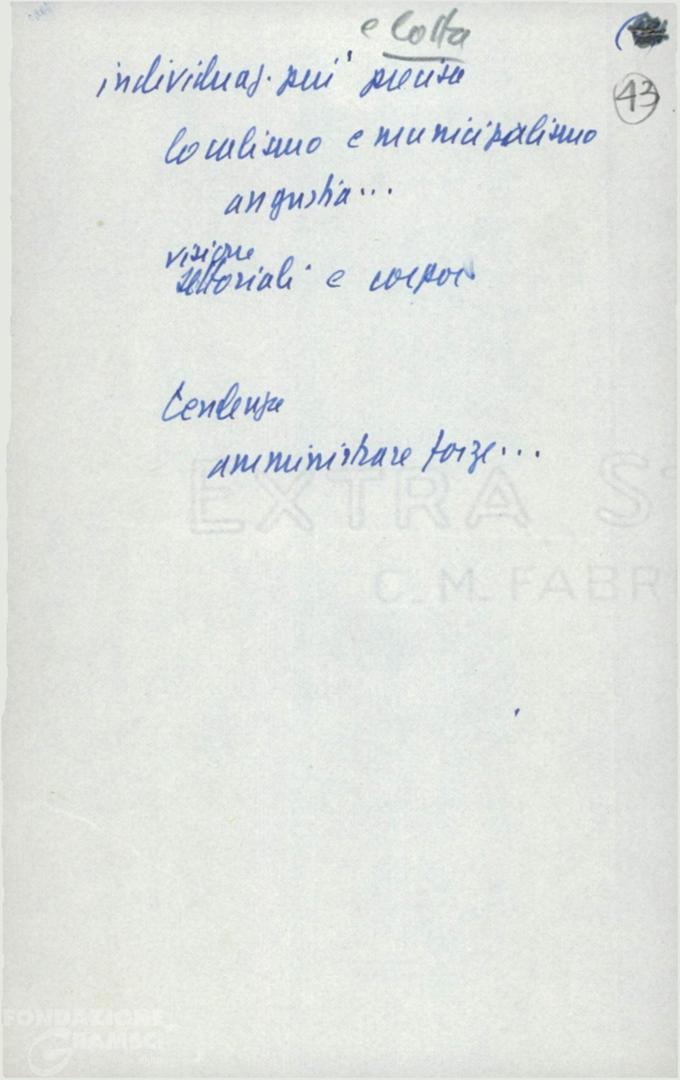 e lotta
43
individuaz. più precisa
localismo e municipalismo
angustia...
visione
settoriali e corpor
Tendenza
amministrare forze...
EXTRA S
C. M. FABR
FONDAZIONE
GRAMSCI